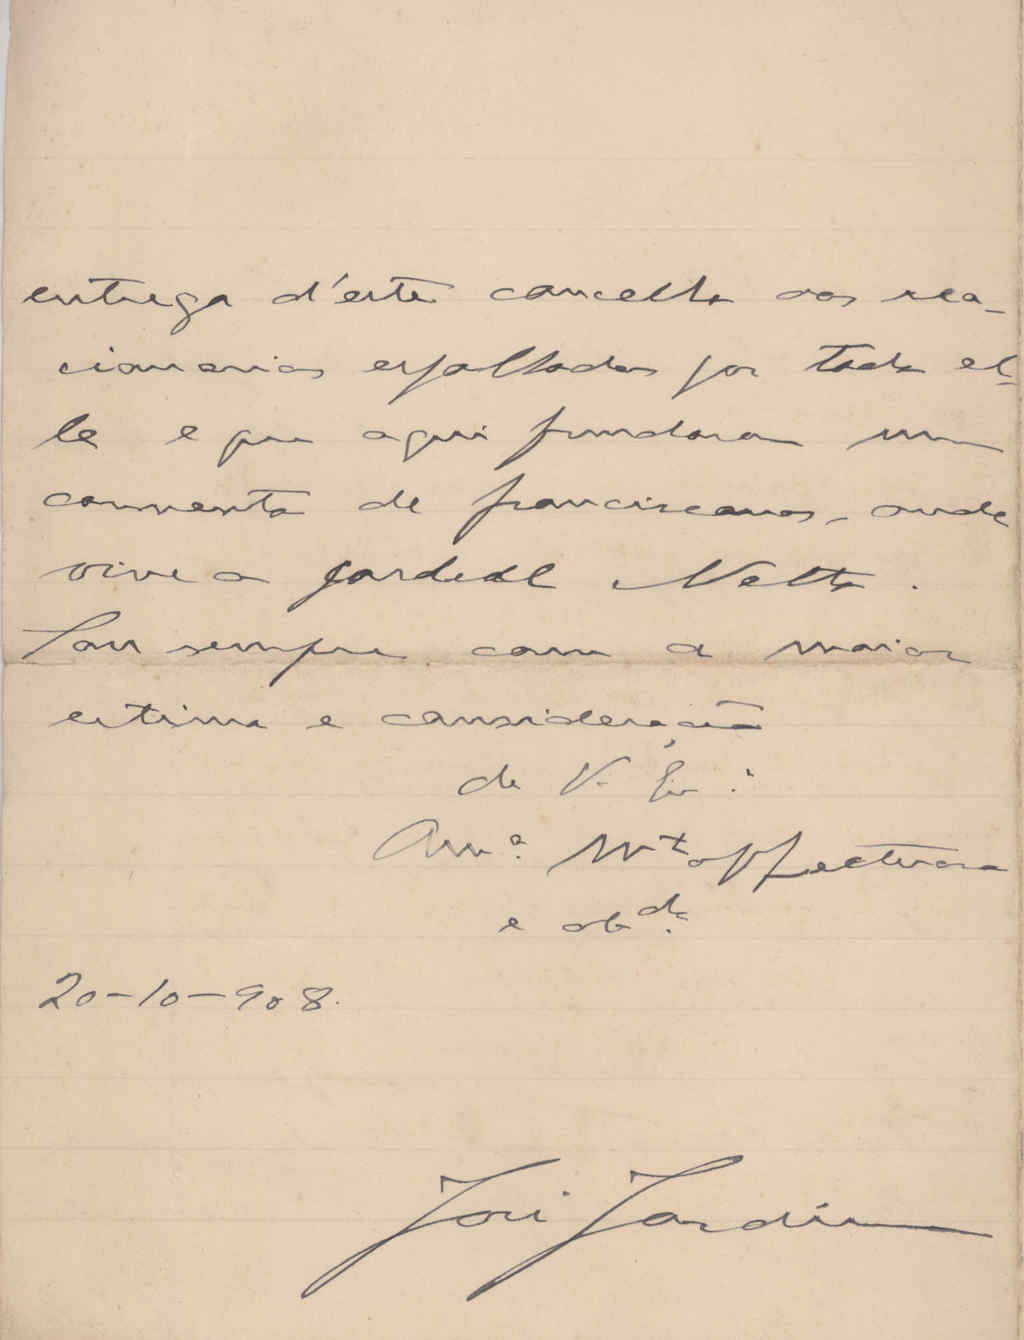 entrega d'este concelho aos rea-
cionarios espalhados por todo el-
le e que aqui fundaram um
convento de franciscanos, onde
vive o Cardeal Netto.
Sou sempre com a maior
estima e consideração
de V. Ex.ª
Am.º Mt.º affectuoso
e obd.º
20-10-908.
José Jardim